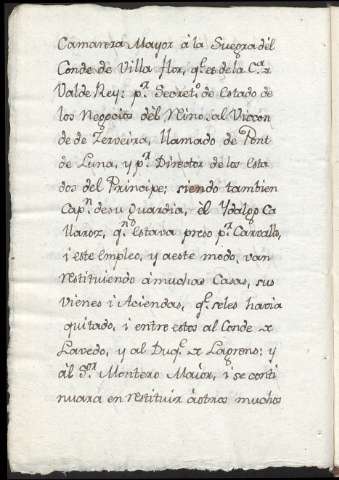 Camarera Mayor à la Suegra dèl
Conde de Villa flor, q.e es de la C.a r
Valde Rey: p.r Secret.o de Estado de
los Negocios dèl Reino, al Viscon
de de Zerveira, llamado de Pont
de Luna, y p.r Director de los Esta
dos del Principe; siendo tambien
Cap.n de su Guardia, èl Ydalgo Ca
llaroz, q.n estava preso p.r Carvallo,
i este Empleo, y a este modo, van
restituiendo à muchas Casas, sus
vienes i Aciendas, q.e seles havia
quitado, i entre estos al Conde r
Lavedo, y al Duq.e r Lafoens: y
àl S.or Montero Maior, i se conti
nuara en restituir à otros muchos